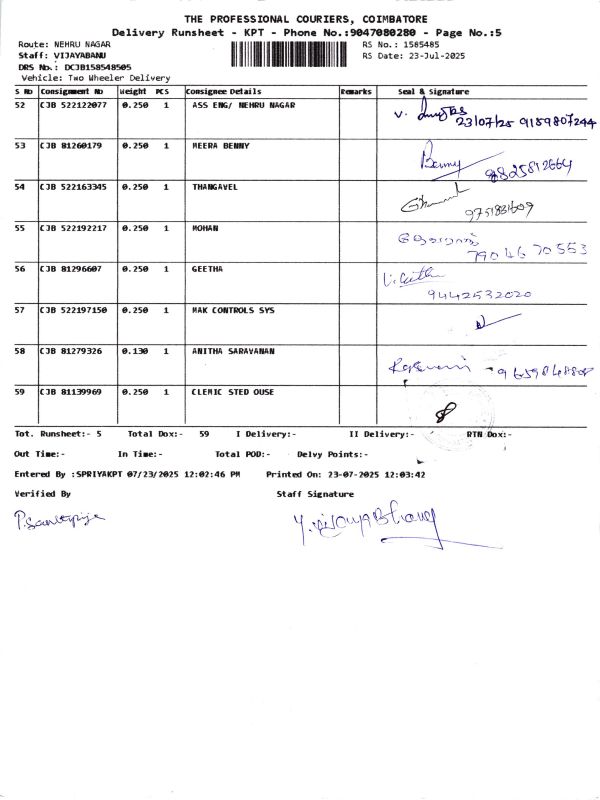 THE PROFESSIONAL COURIERS, COIMBATORE
Delivery Runsheet - KPT - Phone No.:9047080280 - Page No.:5
Route: NEHRU NAGAR RS No.: 1585485
Staff: VIJAYABANU RS Date: 23-Jul-2025
DRS No.: DCJB158548505
Vehicle: Two Wheeler Delivery
S No Consignment No Weight PCS Consignee Details Remarks Seal & Signature
52 CJB 522122077 0.250 1 ASS ENG/ NEHRU NAGAR
23/07/25 9159807244
53 CJB 81260179 0.250 1 MEERA BENNY Benny
54 CJB 522163345 0.250 1 THANGAVEL
55 CJB 522192217 0.250 1 MOHAN
79046 70553
56 CJB 81296607 0.250 1 GEETHA
9442532020
57 CJB 522197150 0.250 1 MAK CONTROLS SYS
58 CJB 81279326 0.130 1 ANITHA SARAVANAN
59 CJB 81139969 0.250 1 CLEMIC STED OUSE
Tot. Runsheet:- 5 Total Dox:- 59 I Delivery:- II Delivery:- RTN Dox:-
Out Time:- In Time:- Total POD:- Delvy Points:-
Entered By :SPRIYAKPT 07/23/2025 12:02:46 PM Printed On: 23-07-2025 12:03:42
Verified By Staff Signature